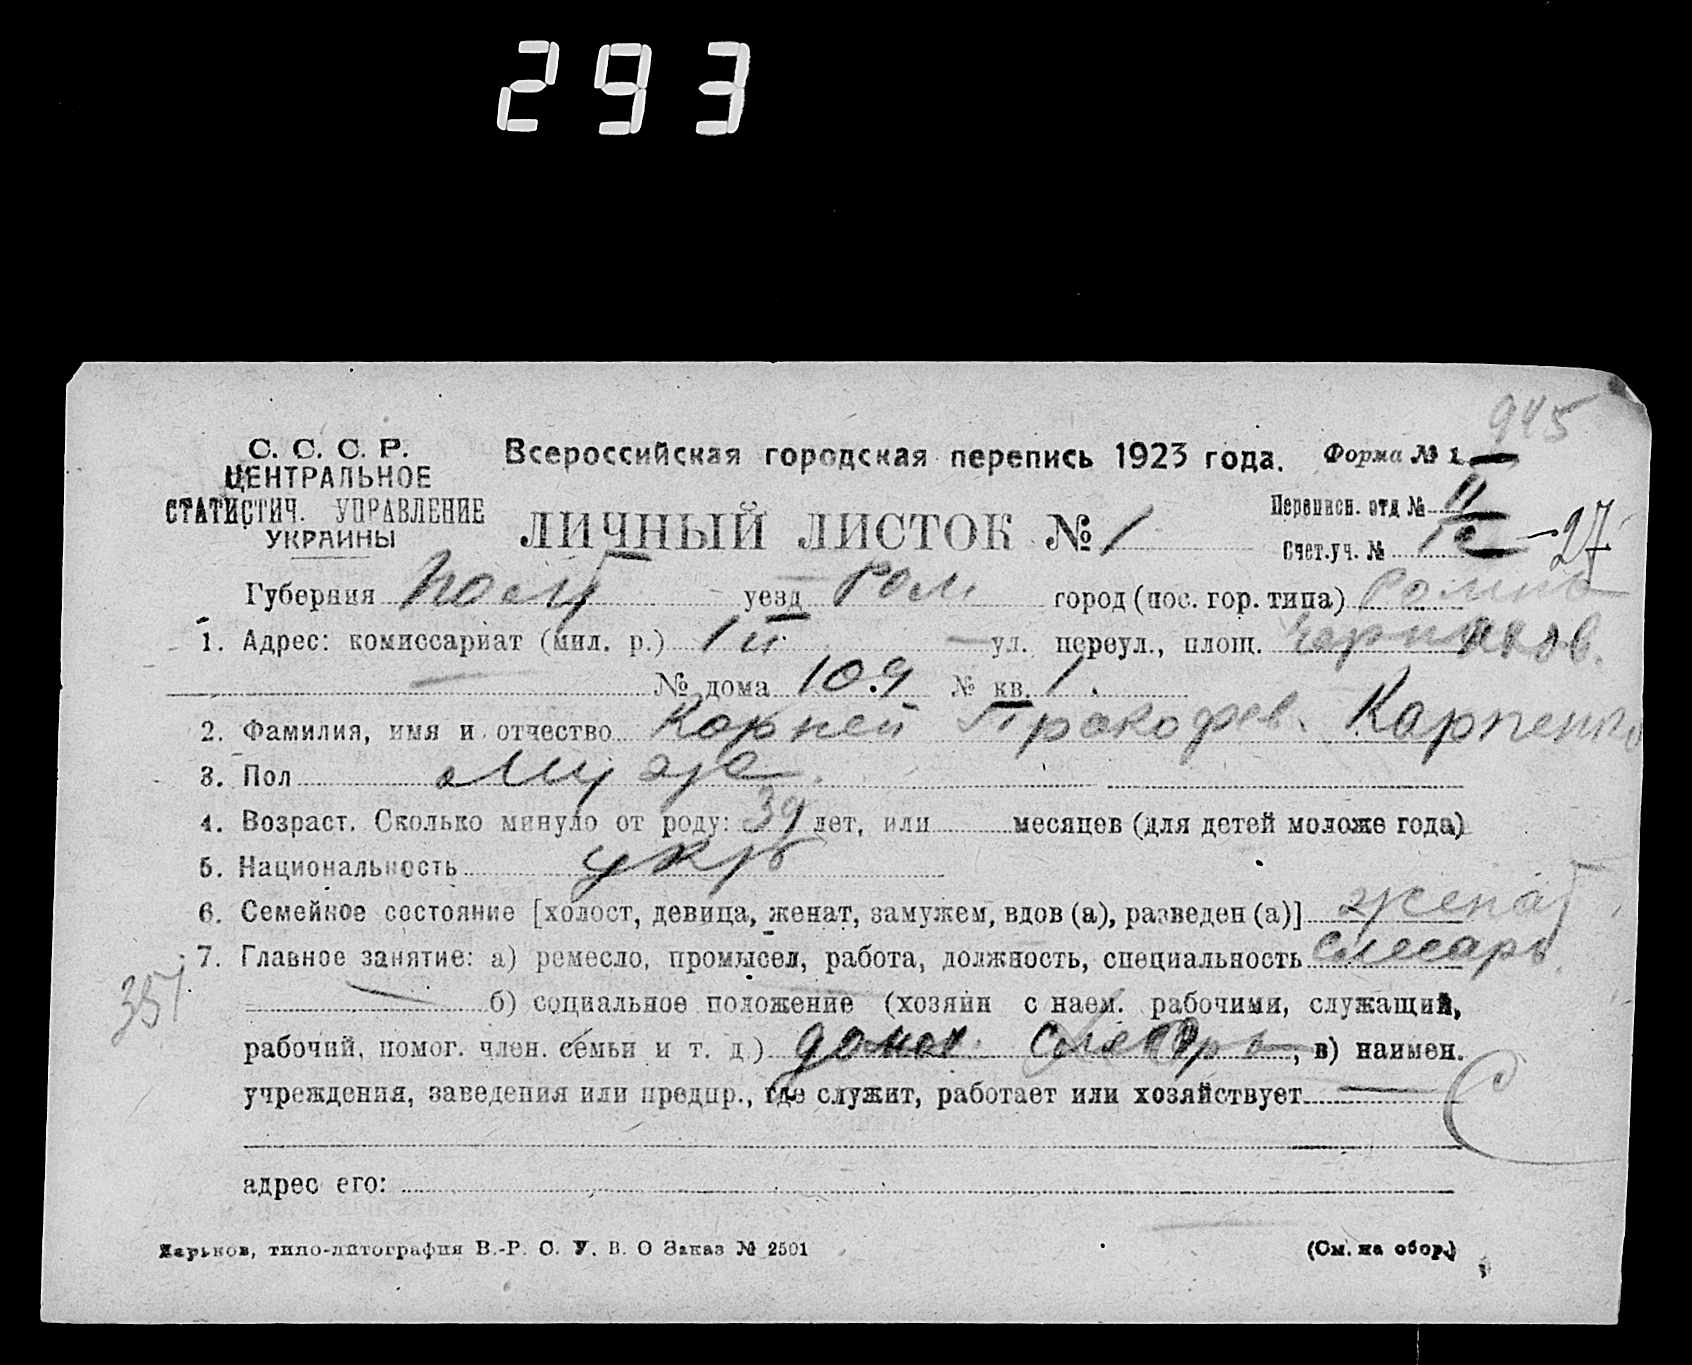 293
945
С. С. С. Р.
ЦЕНТРАЛЬНОЕ
СТАТИСТИЧ. УПРАВЛЕНИЕ
УКРАИНЫ
Всероссийская городская перепись 1923 года. Форма № 1
ЛИЧНЫЙ ЛИСТОК № 1
Переписн. отд №
Счет.уч. № — 27
Губерния Полт уезд Ром город (пос. гор. типа) Ромны
1. Адрес: комиссариат (мил. р.) 1й ул. переул., площ.
№ дома 109 № кв. 1.
2. Фамилия, имя и отчество Корней Прокофев. Карпенко
3. Пол муж.
4. Возраст. Сколько минуло от роду: 39 лет, или месяцев (для детей моложе года)
5. Национальность укр
6. Семейное состояние [холост, девица, женат, замужем, вдов (а), разведен (а)] женат
7. Главное занятие: а) ремесло, промысел, работа, должность, специальность слесарь
351
б) социальное положение (хозяин с наем. рабочими, служащий,
рабочий, помог. член. семьи и т. д.) слесарь, в) наимен.
учреждения, заведения или предпр., где служит, работает или хозяйствует —
адрес его:
Харьков, типо-литография В.-Р. С. У. В. О Заказ № 2501
(См. на обор.)